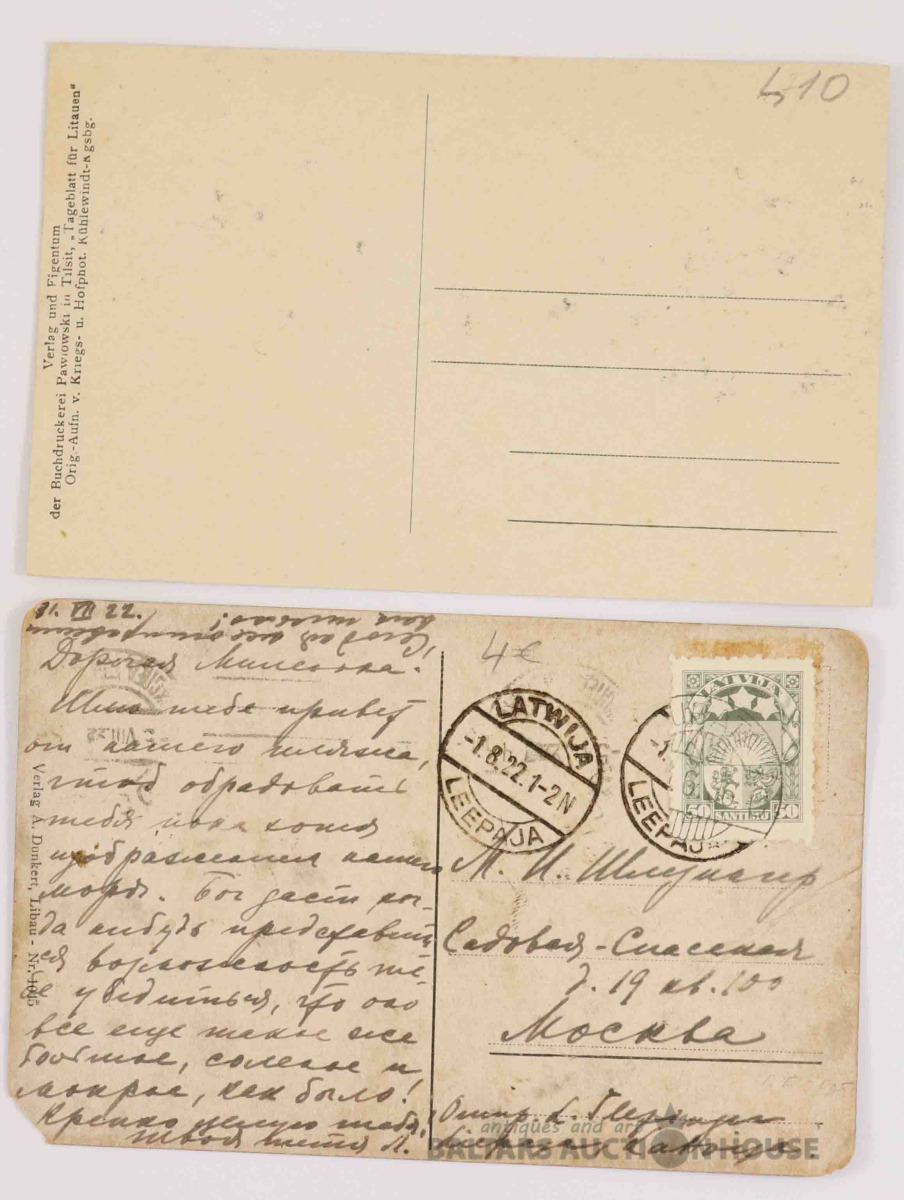 410
Verlag und Eigentum
der Buchdruckerei Pawlowski in Tilsit, „Tageblatt für Litauen“
Orig.-Aufn. v. Kriegs- u. Hofphot. Kühlewindt-Kgsbg.
31. VII 22.
Дорогая Миленька!
Шлю тебе привет
от нашего пляжа,
чтоб обрадовать
тебя пока хотя
изображением нашего
моря. Бог даст ког-
да нибудь представит
ся возможность те-
бе убедиться, что оно
все еще такое же
большое, соленое и
мокрое, как было!
Крепко целую тебя!
Твоя тетя Л.
Verlag A. Dunkert, Libau - Nr.
4€
LATWIJA
-1.8.22.1-2N
LEEPAJA
LATVIJA
50 SANTIMU 50
LEEPAJA
М. И.
Садовая-Спасская
д. 19 кв. 100
Москва
antiques and art
BALTARS AUCTION HOUSE